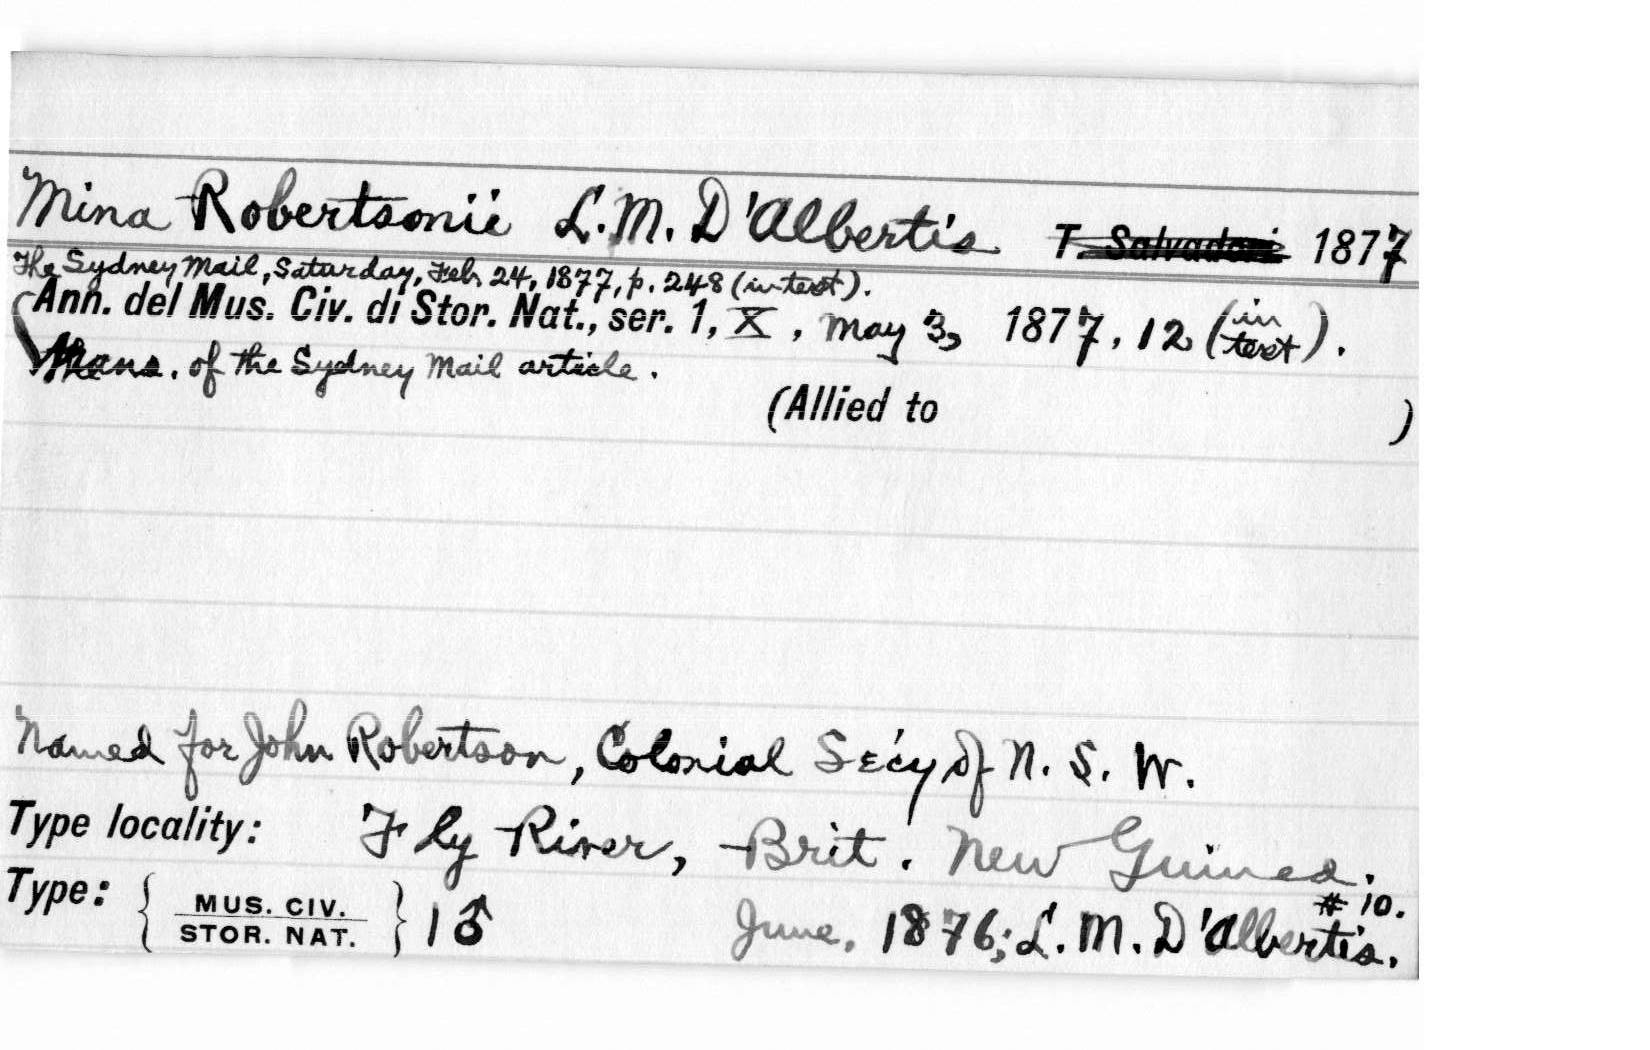 Mina Robertsonii L. M. D'Albertis T. Salvadori 1877
The Sydney Mail, Saturday, Feb. 24, 1877, p. 248 (in text).
(Ann. del Mus. Civ. di Stor. Nat., ser. 1, X, May 3, 1877, 12 (in text).
Trans. of the Sydney Mail article.
(Allied to )
Named for John Robertson, Colonial Sec'y of N. S. W.
Type locality: Fly River, Brit. New Guinea.
Type: { MUS. CIV. STOR. NAT. } 1♂ June, 1876; L. M. D'Albertis. # 10.